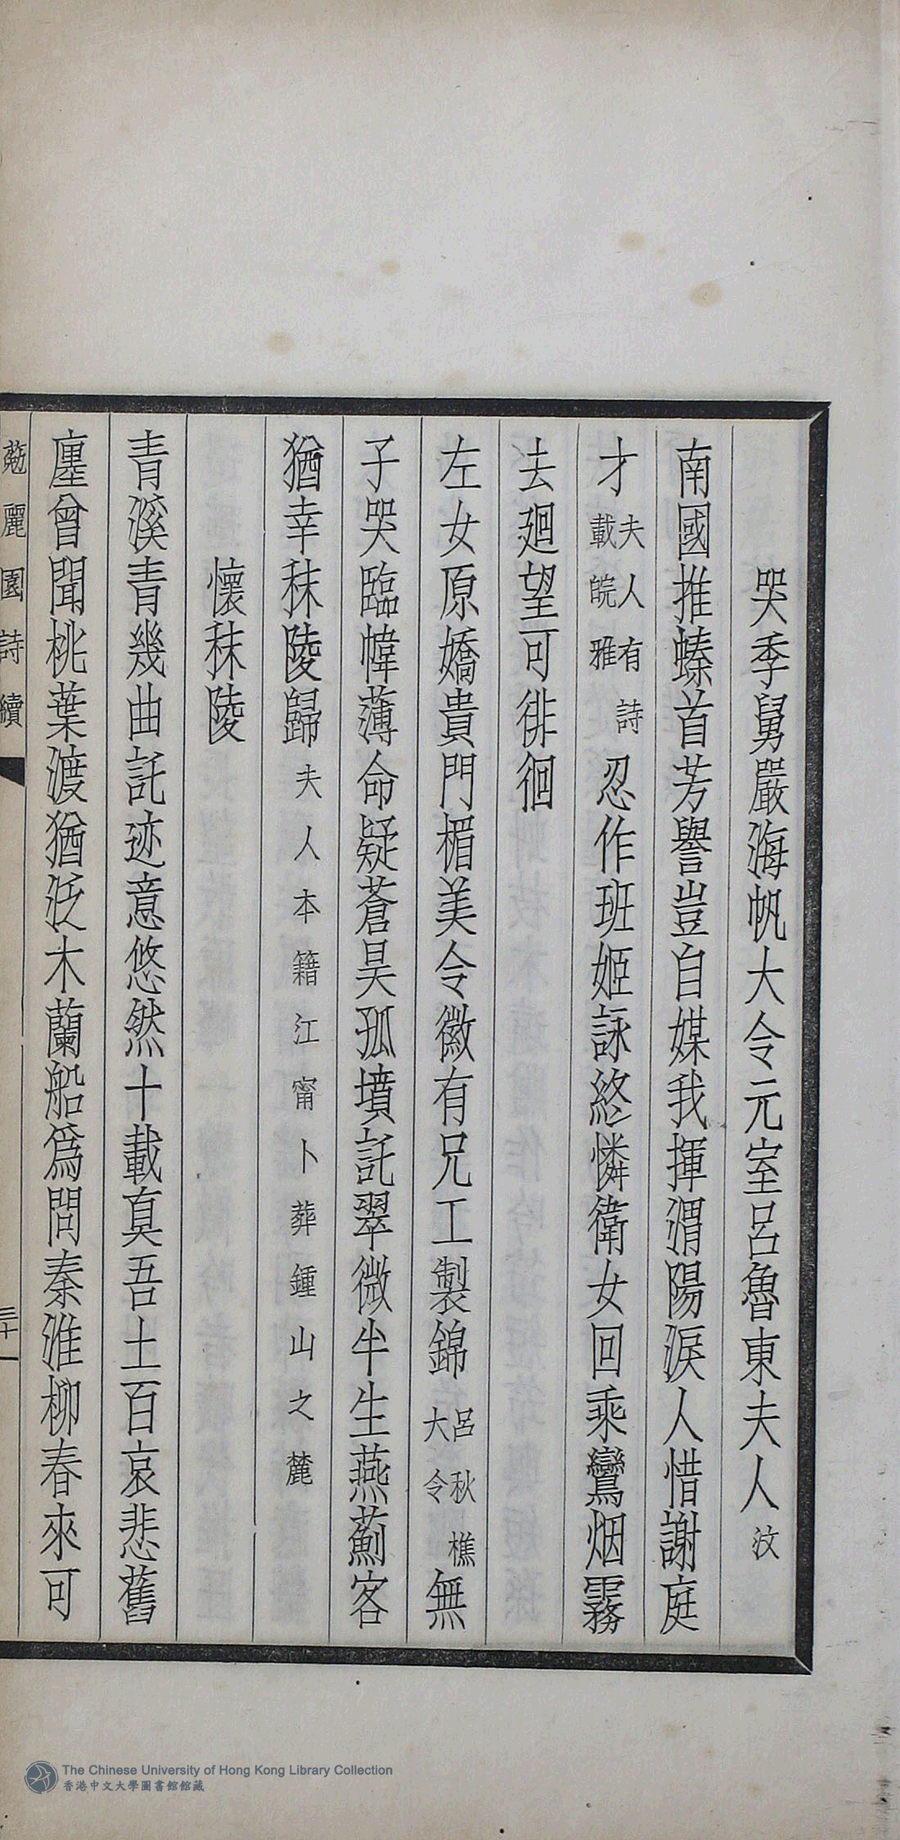 哭季舅嚴海帆大令元室呂魯東夫人汶
南國推螓首芳譽豈自媒我揮渭陽淚人惜謝庭
才夫人有詩載皖雅忍作班姬詠終憐衛女回乘鸞烟霧
去廻望可徘徊
左女原嬌貴門楣美令徽有兄工製錦呂秋樵大令無
子哭臨幃薄命疑蒼昊孤墳託翠微半生燕薊客
猶幸秣陵歸夫人本籍江甯卜葬鍾山之麓
懷秣陵
青溪青幾曲託迹意悠然十載真吾土百哀悲舊
廛曾聞桃葉渡猶泛木蘭船爲問秦淮柳春來可
麗園詩續
三十一
The Chinese University of Hong Kong Library Collection
香港中文大學圖書館館藏